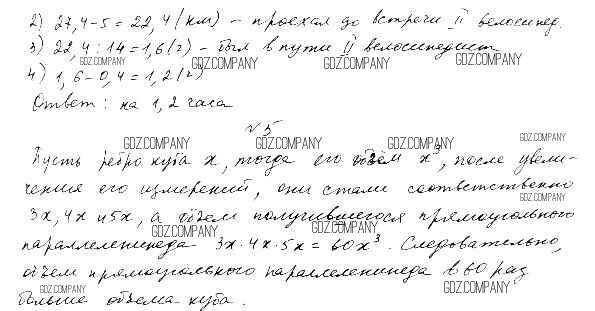 2) 27,4 - 5 = 22,4 (км) - проехал до встречи II велосипед.
3) 22,4 : 14 = 1,6 (г) - был в пути II велосипедист
GDZ.COMPANY GDZ.COMPANY GDZ.COMPANY GDZ.COMPANY
4) 1,6 - 0,4 = 1,2 (г)
Ответ: на 1,2 часа
№5
GDZ.COMPANY GDZ.COMPANY GDZ.COMPANY GDZ.COMPANY
Пусть ребро куба x, тогда его объём x³, после увели-
чения его измерений, они стали соответственно
GDZ.COMPANY
3x, 4x и 5x, а объем получившегося прямоугольного
GDZ.COMPANY GDZ.COMPANY
параллелепипеда 3x · 4x · 5x = 60x³. Следовательно,
объем прямоугольного параллелепипеда в 60 раз
GDZ.COMPANY GDZ.COMPANY
больше объема куба.